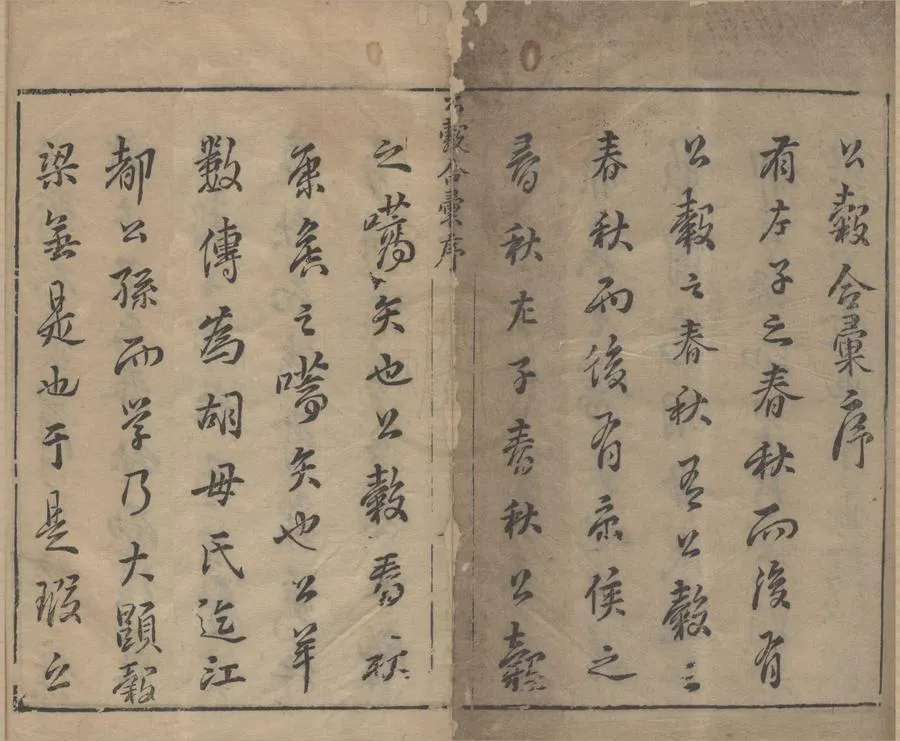 公穀合彙序
有左子之春秋而後有
公穀之春秋有公穀之
春秋而後有康侯之
春秋左子春秋公穀
公穀合彙序
之嚆矢也公穀春秋
康侯之嚆矢也公羊
數傳為胡母氏迄江
都公孫而学乃大顕穀
梁無是也于是瑕丘